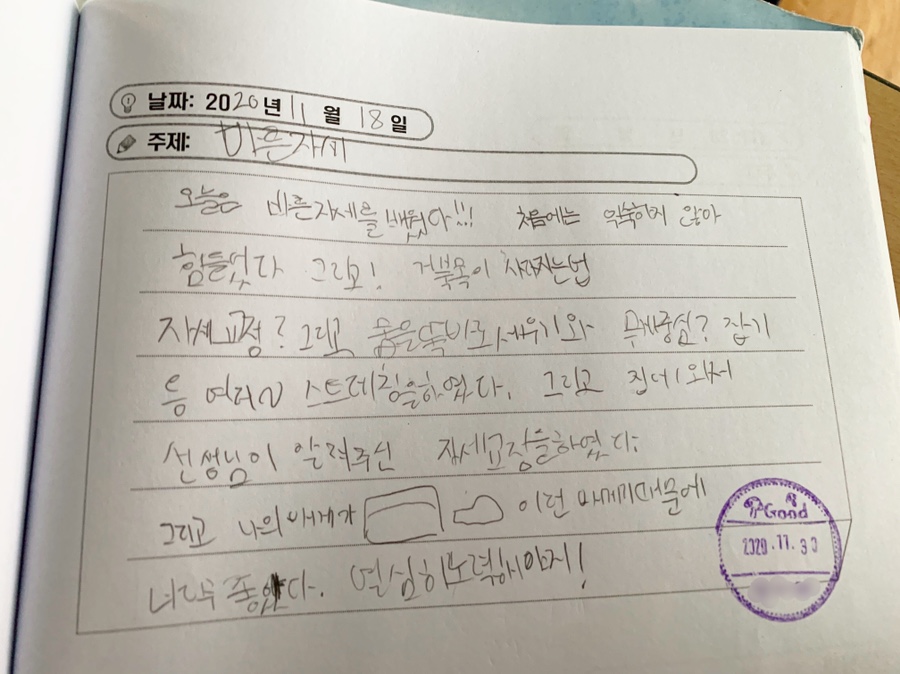 날짜: 2020년 11월 18일
주제: 바른자세
오늘은 바른자세를 배웠다!!! 처음에는 익숙하지 않아
힘들었다 그리고! 거북목이 사라지는법
자세교정? 그리고 몸을똑바로세우기와 무게중심? 잡기
등 여러 스트레칭을하였다. 그리고 집에와서
선생님이 알려주신 자세교정을하였다.
그리고 나의 베게가 이런 때문에
너무 좋았다. 열심히노력해야지!
Good
2020.11.30